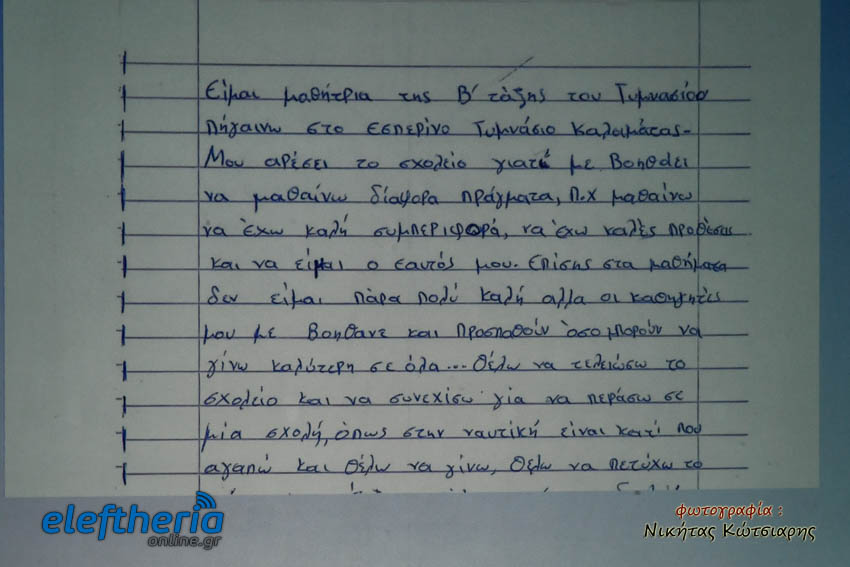 Είμαι μαθήτρια της Β' τάξης του Γυμνασίου
Πήγαινω στο Εσπερινο Γυμνάσιο Καλαμάτας-
Μου αρέσει το σχολείο γιατί με Βοηθάει
να μαθαίνω διάφορα πράγματα, Π.Χ μαθαίνω
να έχω καλή συμπεριφορά, να έχω καλές προθέσεις
και να είμαι ο εαυτός μου. Επίσης στα μαθήματα
δεν είμαι πάρα πολύ καλή αλλα οι καθηγητές
μου με Βοηθανε και προσπαθούν όσο μπορούν να
γίνω καλύτερη σε όλα... Θέλω να τελειώσω το
σχολείο και να συνεχίσω για να περάσω σε
μία σχολή, όπως στην ναυτική είναι κατί που
αγαπώ και θέλω να γίνω, θέλω να πετύχω το
eleftheria
online.gr
φωτογραφία :
Νικήτας Κώτσιαρης